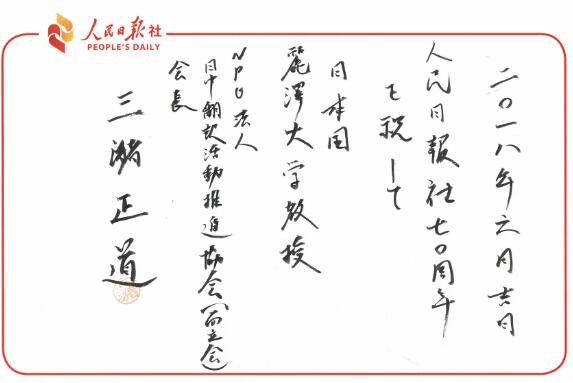 人民日报社
PEOPLE'S DAILY
二〇一八年六月吉日
人民日報社七〇周年
を祝して
日本国
麗澤大学教授
NPO法人
日中翻訳活動推進協会(而立会)
会長
三潴正道